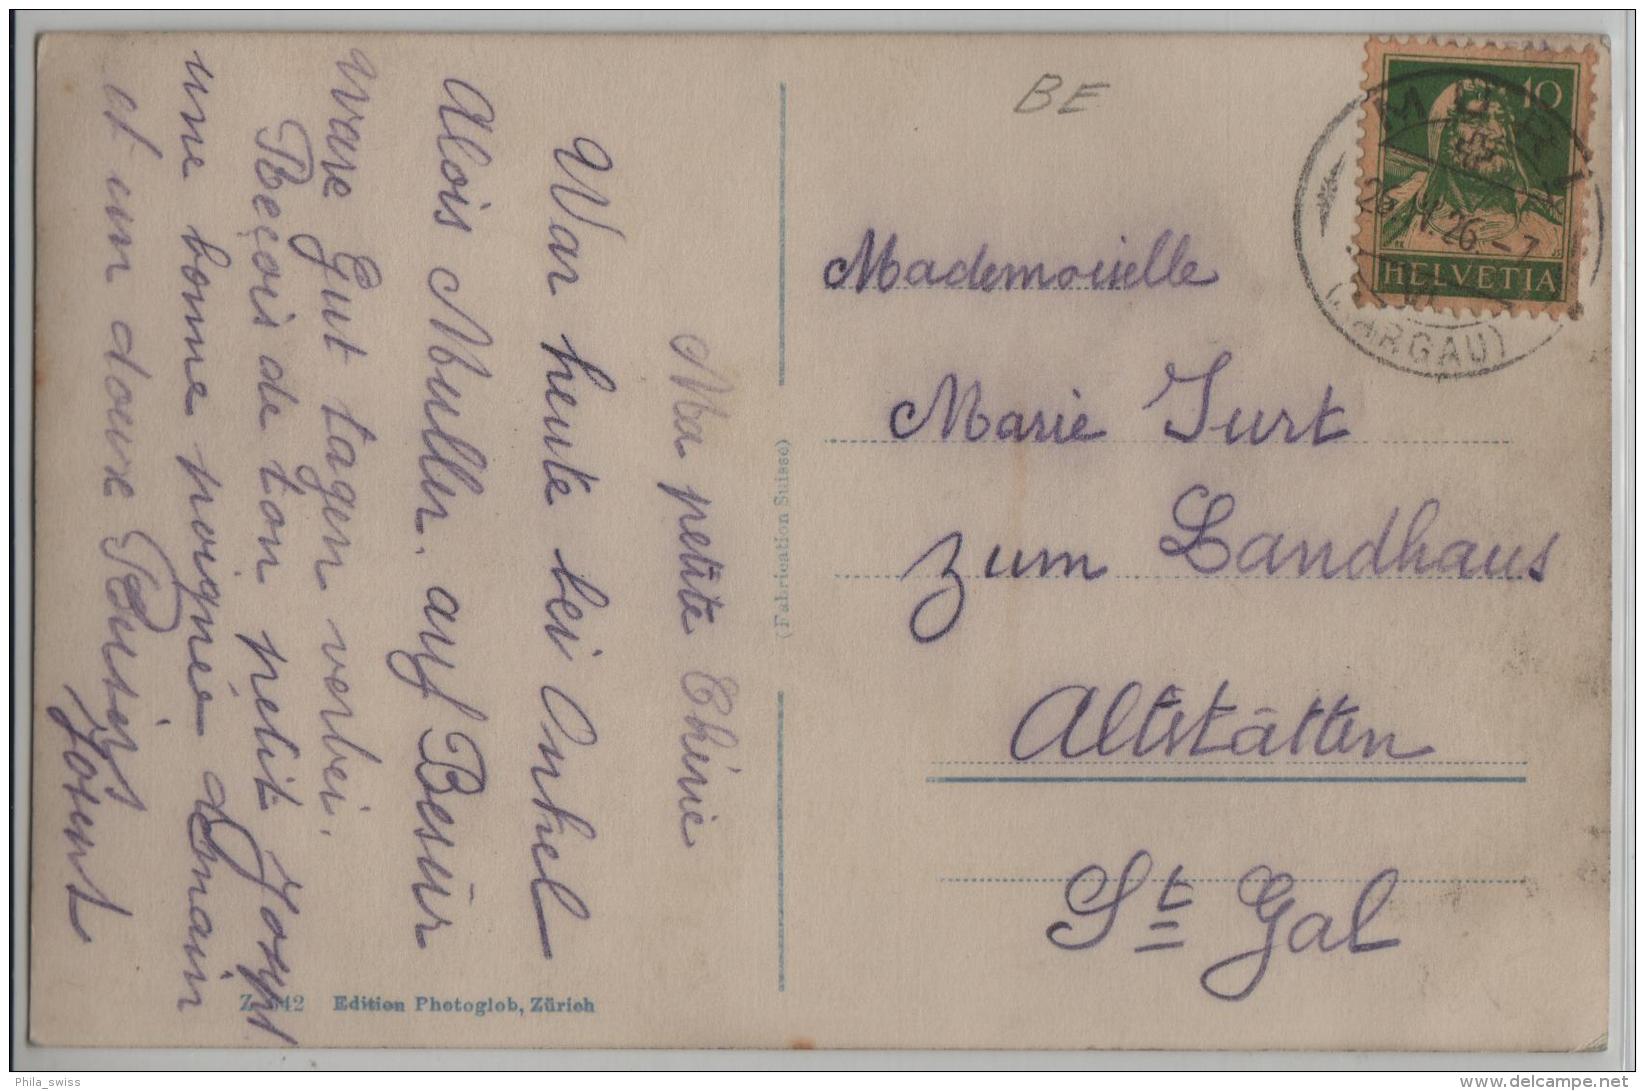 Ma petite Chérie
War heute bei Onkel
Alois Muller. auf Besur
ware Gut tagen verbei.
Reçois de ton petit Josept
une bonne poignée demain
et um doure
BE
10
HELVETIA
MURI
26.IV.26.-7
(AARGAU)
Mademoiselle
Marie Jurt
zum Landhaus
Altstätten
St Gal
(Fabrication Suisse)
Edition Photoglob, Zürich
Phila_swiss
delcampe.net